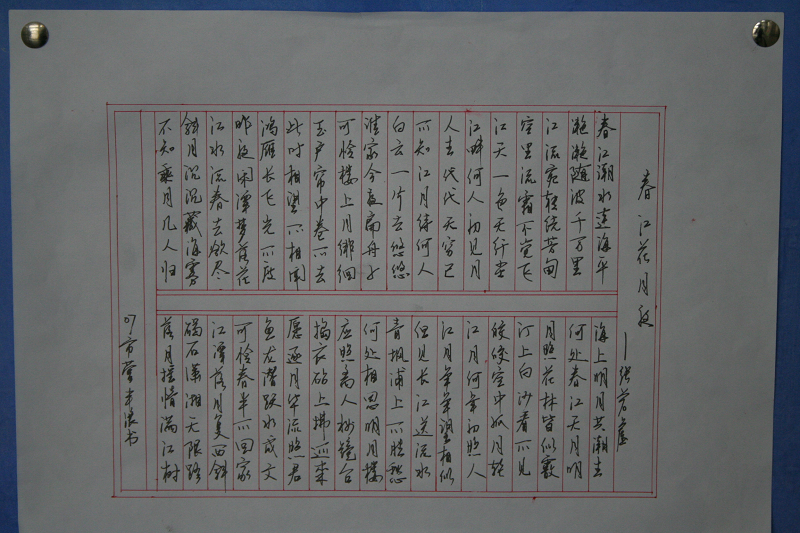 春江花月夜
—张若虚
春江潮水连海平
海上明月共潮生
滟滟随波千万里
何处春江无月明
江流宛转绕芳甸
月照花林皆似霰
空里流霜不觉飞
汀上白沙看不见
江天一色无纤尘
皎皎空中孤月轮
江畔何人初见月
江月何年初照人
人生代代无穷已
江月年年望相似
不知江月待何人
但见长江送流水
白云一片去悠悠
青枫浦上不胜愁
谁家今夜扁舟子
何处相思明月楼
可怜楼上月徘徊
应照离人妆镜台
玉户帘中卷不去
捣衣砧上拂还来
此时相望不相闻
愿逐月华流照君
鸿雁长飞光不度
鱼龙潜跃水成文
昨夜闲潭梦落花
可怜春半不回家
江水流春去欲尽
江潭落月复西斜
斜月沉沉藏海雾
碣石潇湘无限路
不知乘月几人归
落月摇情满江树
书